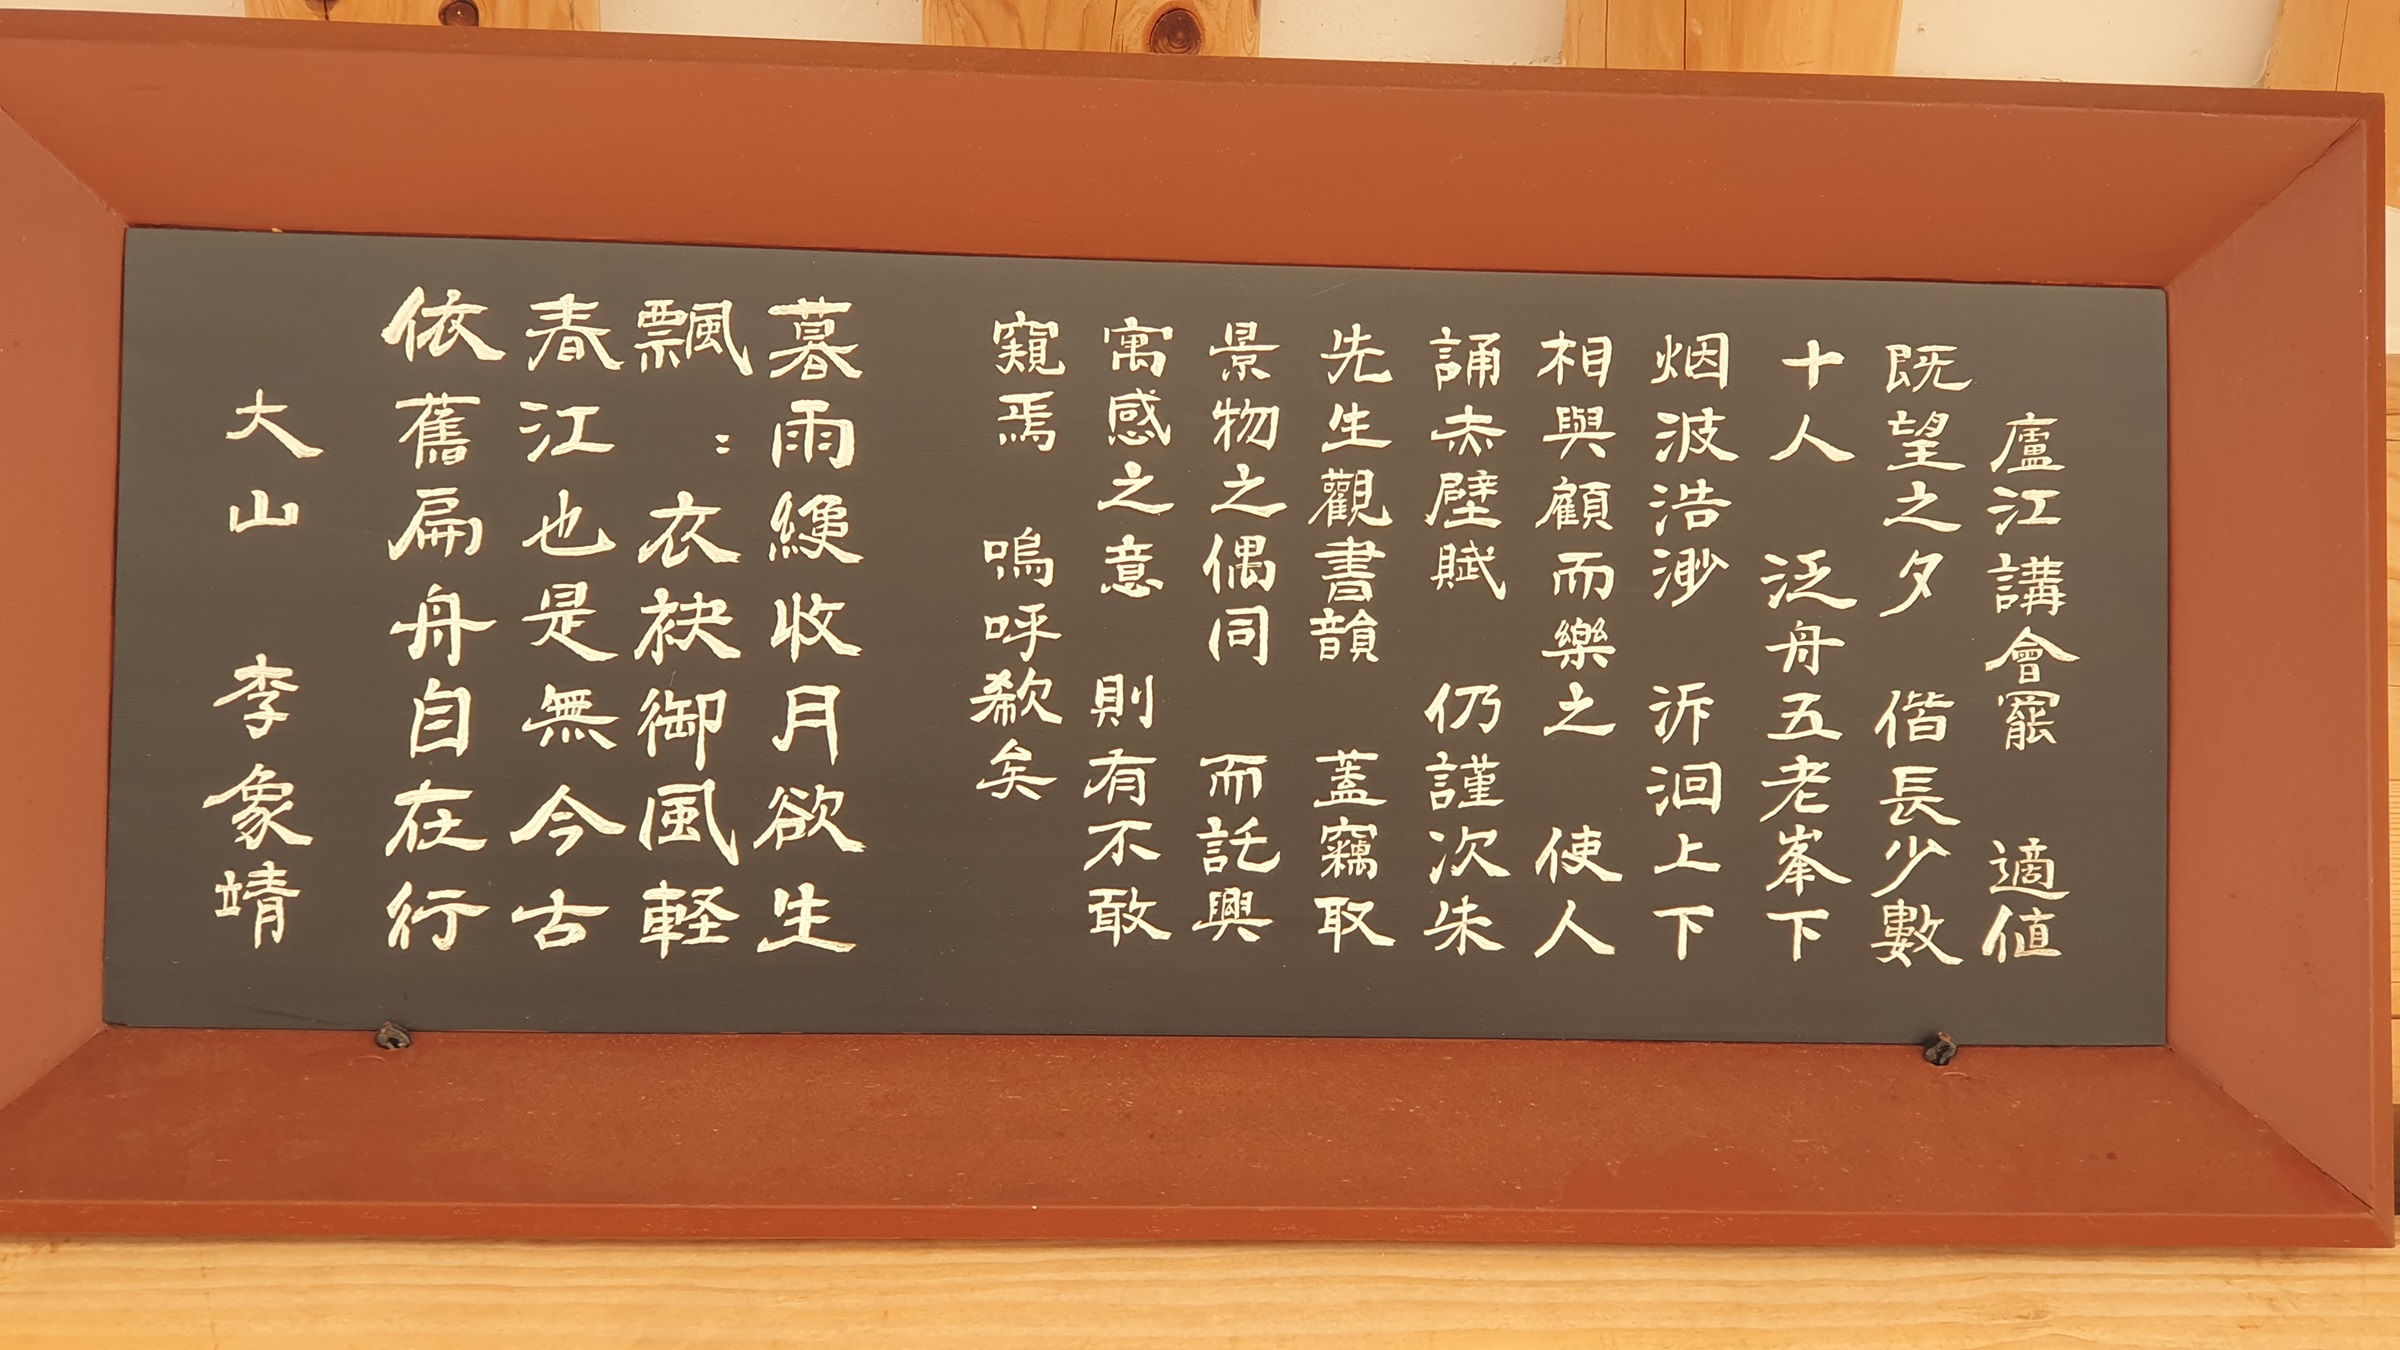 廬江講會罷 適值
旣望之夕 偕長少數
十人 泛舟五老峯下
烟波浩渺 泝洄上下
相與顧而樂之 使人
誦赤壁賦 仍謹次朱
先生觀書韻 蓋竊取
景物之偶同 而託興
寓感之意 則有不敢
窺焉 嗚呼欷矣
暮雨纔收月欲生
飄〻衣袂御風軽
春江也是無今古
依舊扁舟自在行
大山 李象靖